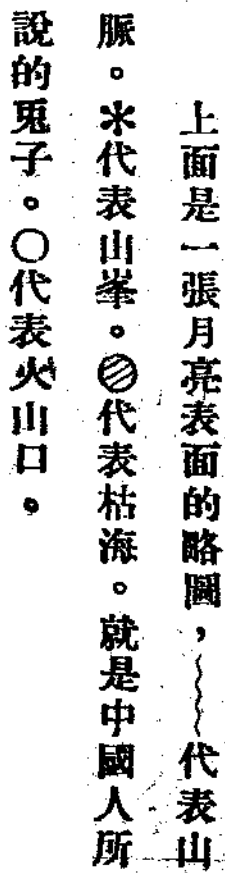 上面是一張月亮表面的略圖，﹏﹏代表山
脈。＊代表山峯。◍代表枯海。就是中國人所
說的兎子。○代表火山口。